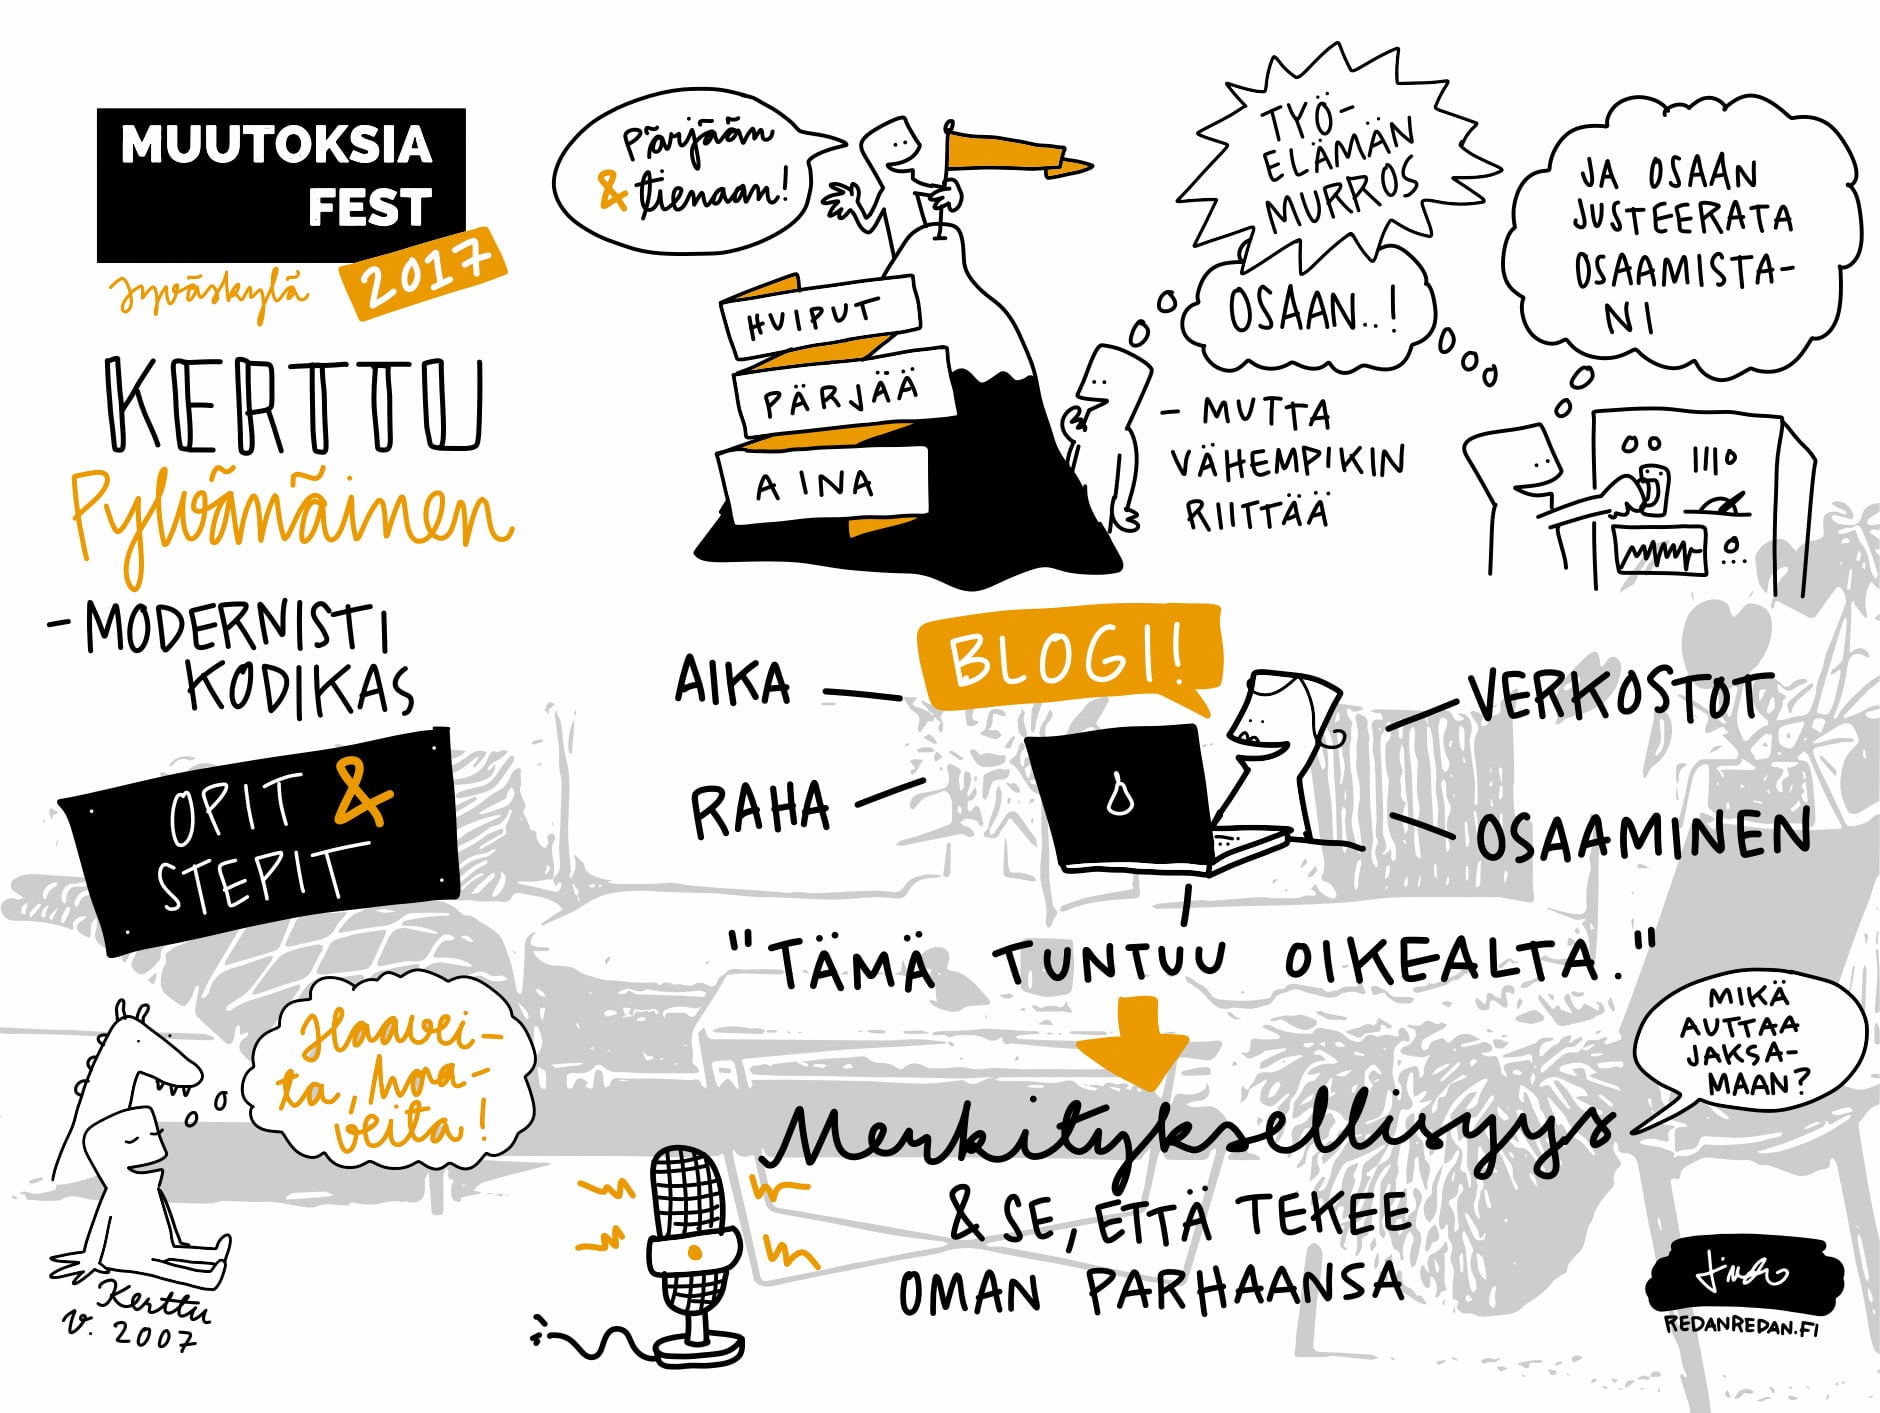 MUUTOKSIA
FEST
Jyväskylä
2017
KERTTU
Pylvämäinen
- MODERNISTI
KODIKAS
OPIT &
STEPIT
Haavei-
ta, haa-
veita!
Kerttu
v. 2007
Pärjään
& tienaan!
HUIPUT
PÄRJÄÄ
AINA
TYÖ-
ELÄMÄN
MURROS
OSAAN..!
- MUTTA
VÄHEMPIKIN
RIITTÄÄ
JA OSAAN
JUSTEERATA
OSAAMISTA-
NI
BLOGI!
AIKA
RAHA
VERKOSTOT
OSAAMINEN
"TÄMÄ TUNTUU OIKEALTA."
MIKÄ
AUTTAA
JAKSA-
MAAN?
Merkityksellisyys
& SE, ETTÄ TEKEE
OMAN PARHAANSA
REDANREDAN.FI